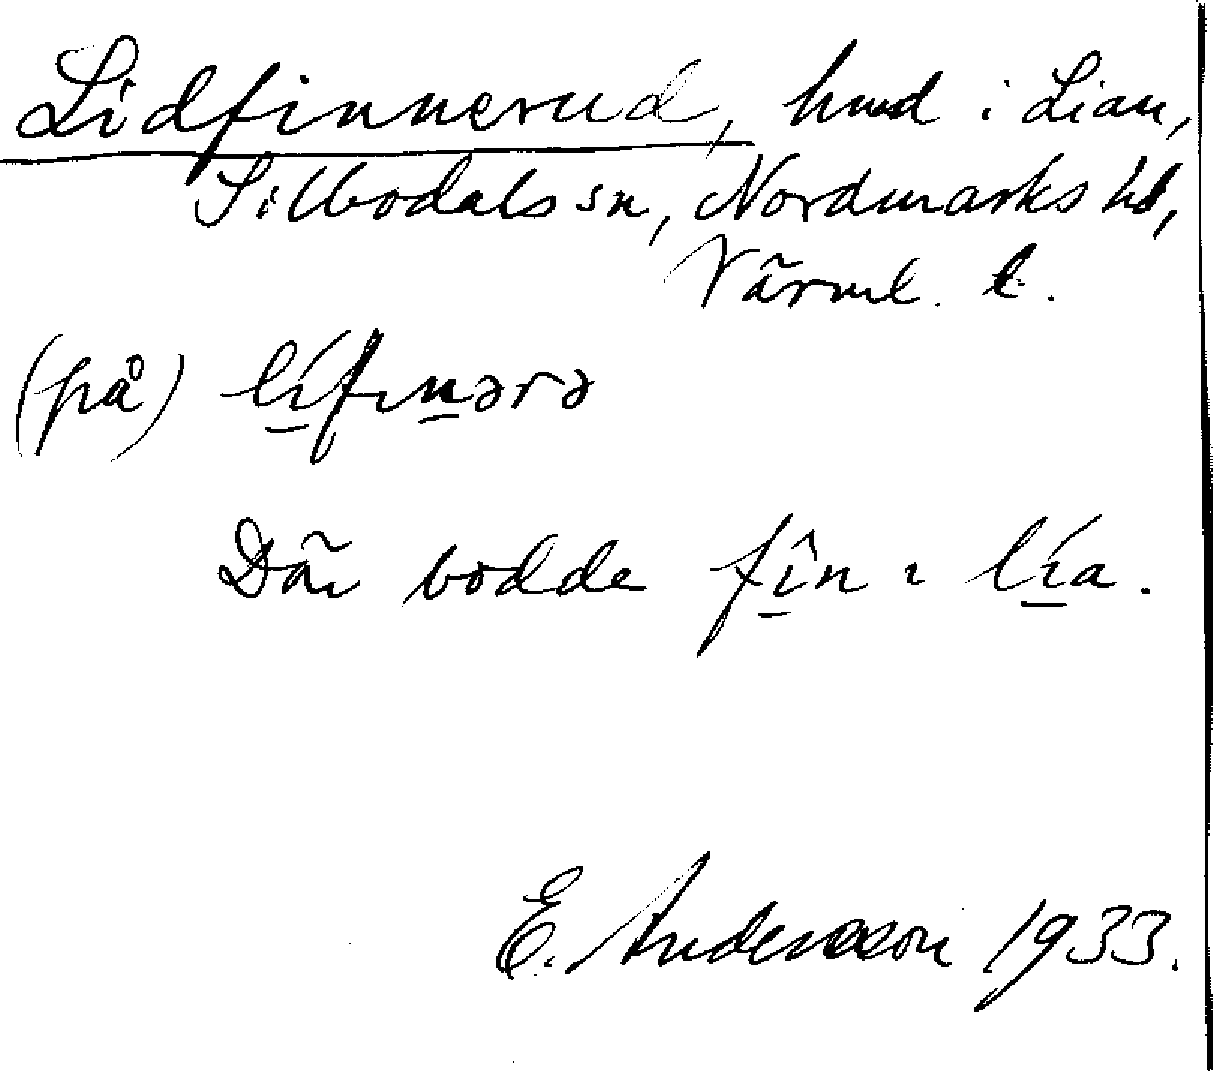 Lidfinnerud, hmd i Lian,
Silbodals sn, Nordmarks hd,
Värml. l.
(på) lífinərə
Där bodde fîn i lía.
E. Andersson 1933.